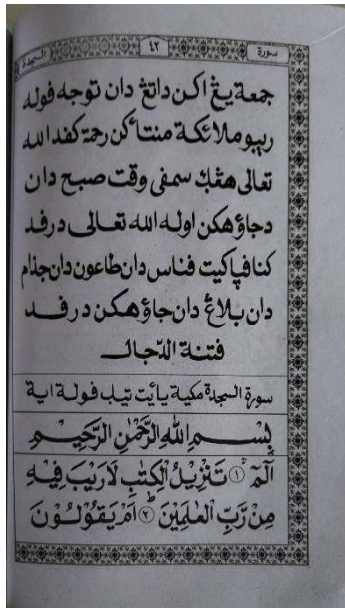 سورة ٤٢ السجدة
جمعة يڠ اكن داتڠ دان توجه فوله
ريبو ملائكة منتأكن رحمة كفد الله
تعالى هڠݢ سمفى وقت صبح دان
دجاؤهكن اوله الله تعالى درفد
كنا فپاكيت فناس دان طاعون دان جذام
دان بلاغ دان جاؤهكن درفد
فتنة الدّجال
سورة السجدة مكية يأيت تيݢ فوله اية
بِسْمِ اللهِ الرَّحْمٰنِ الرَّحِيْمِ
الٓمّٓ ۝١ تَنْزِيْلُ الْكِتٰبِ لَا رَيْبَ فِيْهِ
مِنْ رَّبِّ الْعٰلَمِيْنَ ۝٢ اَمْ يَقُوْلُوْنَ